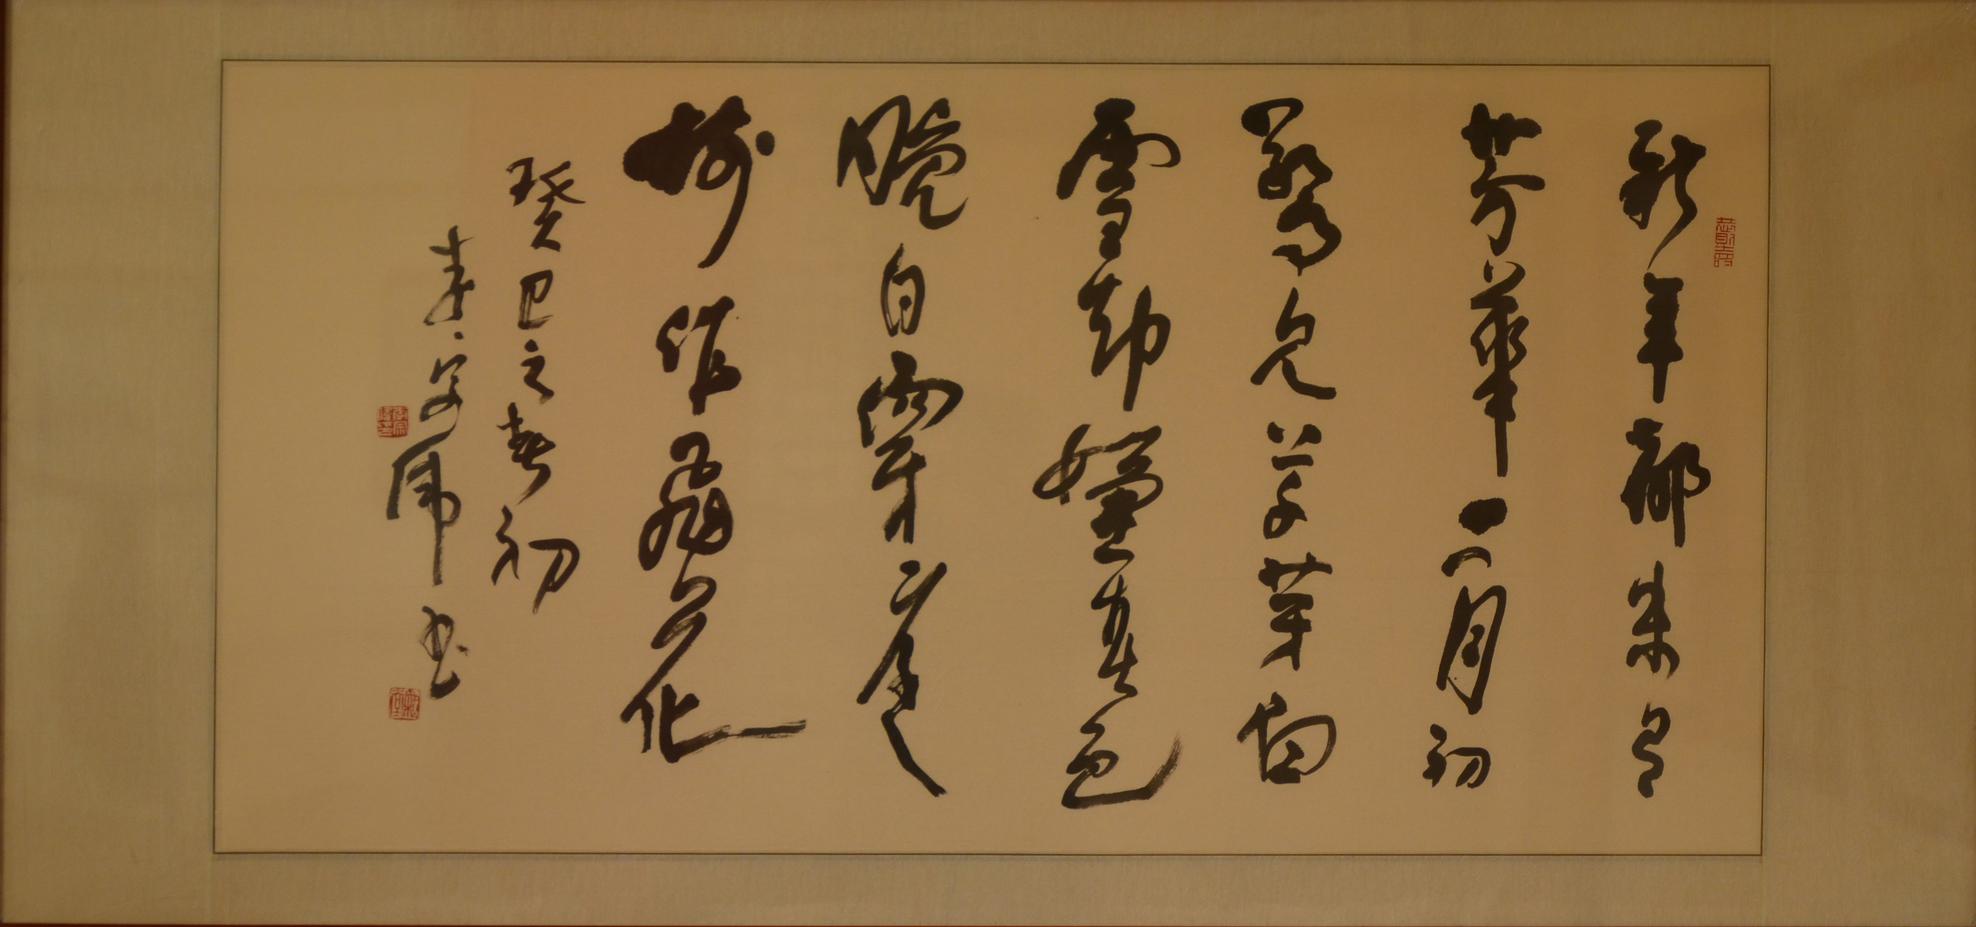 新年都未有
芳華二月初
驚見草芽白
雪却嫌春色
晚自穿庭
樹作飛花
癸巳之春初
书